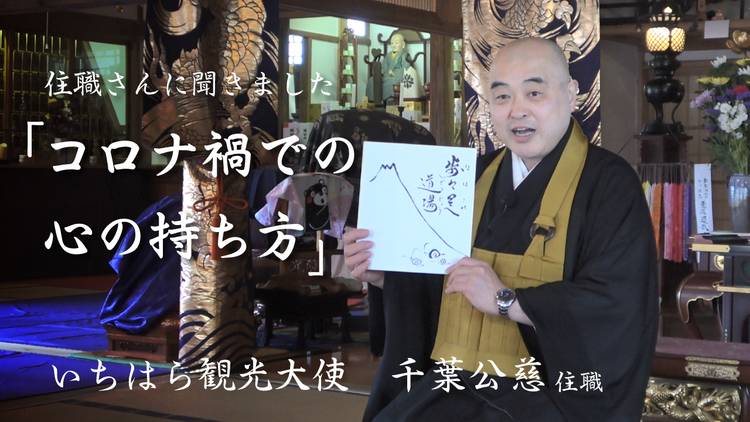 住職さんに聞きました
「コロナ禍での
心の持ち方」
歩々是
道場
いちはら観光大使　千葉公慈 住職